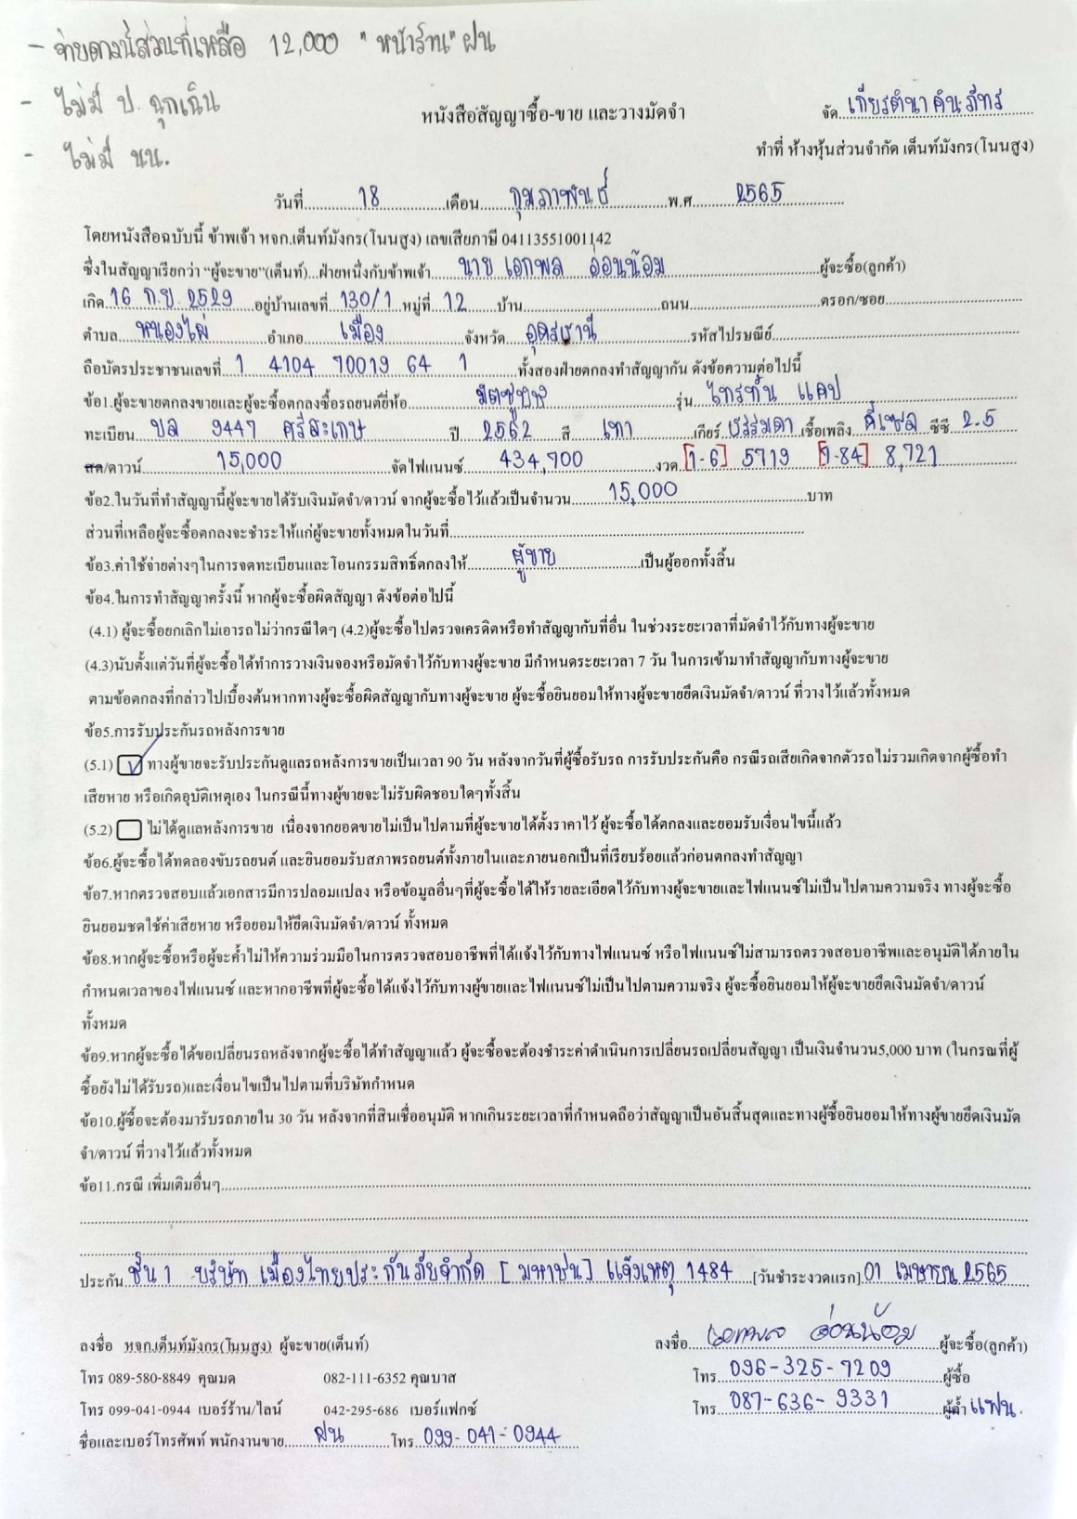 - จ่ายดาวน์ส่วนที่เหลือ 12,000 "หน้าร้าน" ฝน
- ไม่มี ป. ฉุกเฉิน
- ไม่มี นน.
หนังสือสัญญาซื้อ-ขาย และวางมัดจำ
จัด เกียรตินาคินภัทร
ทำที่ ห้างหุ้นส่วนจำกัด เต็นท์มังกร(โนนสูง)
วันที่ 18 เดือน กุมภาพันธ์ พ.ศ. 2565
โดยหนังสือฉบับนี้ ข้าพเจ้า หจก.เต็นท์มังกร(โนนสูง) เลขเสียภาษี 04113551001142
ซึ่งในสัญญาเรียกว่า "ผู้จะขาย"(เต็นท์)...ฝ่ายหนึ่งกับข้าพเจ้า นาย เอกพล อ่อนน้อม ผู้จะซื้อ(ลูกค้า)
เกิด 16 ก.ย. 2529 อยู่บ้านเลขที่ 130/1 หมู่ที่ 12 บ้าน ถนน ตรอก/ซอย
ตำบล หนองไผ่ อำเภอ เมือง จังหวัด อุดรธานี รหัสไปรษณีย์
ถือบัตรประชาชนเลขที่ 1 4104 70019 64 1 ทั้งสองฝ่ายตกลงทำสัญญากัน ดังข้อความต่อไปนี้
ข้อ1.ผู้จะขายตกลงขายและผู้จะซื้อตกลงซื้อรถยนต์ยี่ห้อ มิตซูบิชิ รุ่น ไทรทัน แคป
ทะเบียน บล 9447 ศรีสะเกษ ปี 2562 สี เทา เกียร์ ธรรมดา เชื้อเพลิง ดีเซล ซีซี 2.5
สด/ดาวน์ 15,000 จัดไฟแนนซ์ 434,700 งวด [1-6] 5719 [7-84] 8,721
ข้อ2.ในวันที่ทำสัญญานี้ผู้จะขายได้รับเงินมัดจำ/ดาวน์ จากผู้จะซื้อไว้แล้วเป็นจำนวน 15,000 บาท
ส่วนที่เหลือผู้จะซื้อตกลงจะชำระให้แก่ผู้จะขายทั้งหมดในวันที่
ข้อ3.ค่าใช้จ่ายต่างๆในการจดทะเบียนและโอนกรรมสิทธิ์ตกลงให้ ผู้ขาย เป็นผู้ออกทั้งสิ้น
ข้อ4.ในการทำสัญญาครั้งนี้ หากผู้จะซื้อผิดสัญญา ดังข้อต่อไปนี้
(4.1) ผู้จะซื้อยกเลิกไม่เอารถไม่ว่ากรณีใดๆ (4.2)ผู้จะซื้อไปตรวจเครดิตหรือทำสัญญากับที่อื่น ในช่วงระยะเวลาที่มัดจำไว้กับทางผู้จะขาย
(4.3)นับตั้งแต่วันที่ผู้จะซื้อได้ทำการวางเงินจองหรือมัดจำไว้กับทางผู้จะขาย มีกำหนดระยะเวลา 7 วัน ในการเข้ามาทำสัญญากับทางผู้จะขาย
ตามข้อตกลงที่กล่าวไปเบื้องต้นหากทางผู้จะซื้อผิดสัญญากับทางผู้จะขาย ผู้จะซื้อยินยอมให้ทางผู้จะขายยึดเงินมัดจำ/ดาวน์ ที่วางไว้แล้วทั้งหมด
ข้อ5.การรับประกันรถหลังการขาย
(5.1) ทางผู้ขายจะรับประกันดูแลรถหลังการขายเป็นเวลา 90 วัน หลังจากวันที่ผู้ซื้อรับรถ การรับประกันคือ กรณีรถเสียเกิดจากตัวรถไม่รวมเกิดจากผู้ซื้อทำ
เสียหาย หรือเกิดอุบัติเหตุเอง ในกรณีนี้ทางผู้ขายจะไม่รับผิดชอบใดๆทั้งสิ้น
(5.2) ไม่ได้ดูแลหลังการขาย เนื่องจากยอดขายไม่เป็นไปตามที่ผู้จะขายได้ตั้งราคาไว้ ผู้จะซื้อได้ตกลงและยอมรับเงื่อนไขนี้แล้ว
ข้อ6.ผู้จะซื้อได้ทดลองขับรถยนต์ และยินยอมรับสภาพรถยนต์ทั้งภายในและภายนอกเป็นที่เรียบร้อยแล้วก่อนตกลงทำสัญญา
ข้อ7.หากตรวจสอบแล้วเอกสารมีการปลอมแปลง หรือข้อมูลอื่นๆที่ผู้จะซื้อได้ให้รายละเอียดไว้กับทางผู้จะขายและไฟแนนซ์ไม่เป็นไปตามความจริง ทางผู้จะซื้อ
ยินยอมชดใช้ค่าเสียหาย หรือยอมให้ยึดเงินมัดจำ/ดาวน์ ทั้งหมด
ข้อ8.หากผู้จะซื้อหรือผู้จะค้ำไม่ให้ความร่วมมือในการตรวจสอบอาชีพที่ได้แจ้งไว้กับทางไฟแนนซ์ หรือไฟแนนซ์ไม่สามารถตรวจสอบอาชีพและอนุมัติได้ภายใน
กำหนดเวลาของไฟแนนซ์ และหากอาชีพที่ผู้จะซื้อได้แจ้งไว้กับทางผู้ขายและไฟแนนซ์ไม่เป็นไปตามความจริง ผู้จะซื้อยินยอมให้ผู้จะขายยึดเงินมัดจำ/ดาวน์
ทั้งหมด
ข้อ9.หากผู้จะซื้อได้ขอเปลี่ยนรถหลังจากผู้จะซื้อได้ทำสัญญาแล้ว ผู้จะซื้อจะต้องชำระค่าดำเนินการเปลี่ยนรถเปลี่ยนสัญญา เป็นเงินจำนวน5,000 บาท (ในกรณที่ผู้
ซื้อยังไม่ได้รับรถ)และเงื่อนไขเป็นไปตามที่บริษัทกำหนด
ข้อ10.ผู้ซื้อจะต้องมารับรถภายใน 30 วัน หลังจากที่สินเชื่ออนุมัติ หากเกินระยะเวลาที่กำหนดถือว่าสัญญาเป็นอันสิ้นสุดและทางผู้ซื้อยินยอมให้ทางผู้ขายยึดเงินมัด
จำ/ดาวน์ ที่วางไว้แล้วทั้งหมด
ข้อ11.กรณี เพิ่มเติมอื่นๆ
ประกัน ชั้น 1 บริษัท เมืองไทยประกันภัยจำกัด [มหาชน] แจ้งเหตุ 1484 [วันชำระงวดแรก] 01 เมษายน 2565
ลงชื่อ หจก.เต็นท์มังกร(โนนสูง) ผู้จะขาย(เต็นท์) ลงชื่อ เอกพล อ่อนน้อม ผู้จะซื้อ(ลูกค้า)
โทร 089-580-8849 คุณมด 082-111-6352 คุณบาส โทร 096-325-7209 ผู้ซื้อ
โทร 099-041-0944 เบอร์ร้าน/ไลน์ 042-295-686 เบอร์แฟกซ์ โทร 087-636-9331 ผู้ค้ำ แฟน.
ชื่อและเบอร์โทรศัพท์ พนักงานขาย ฝน โทร 099-041-0944